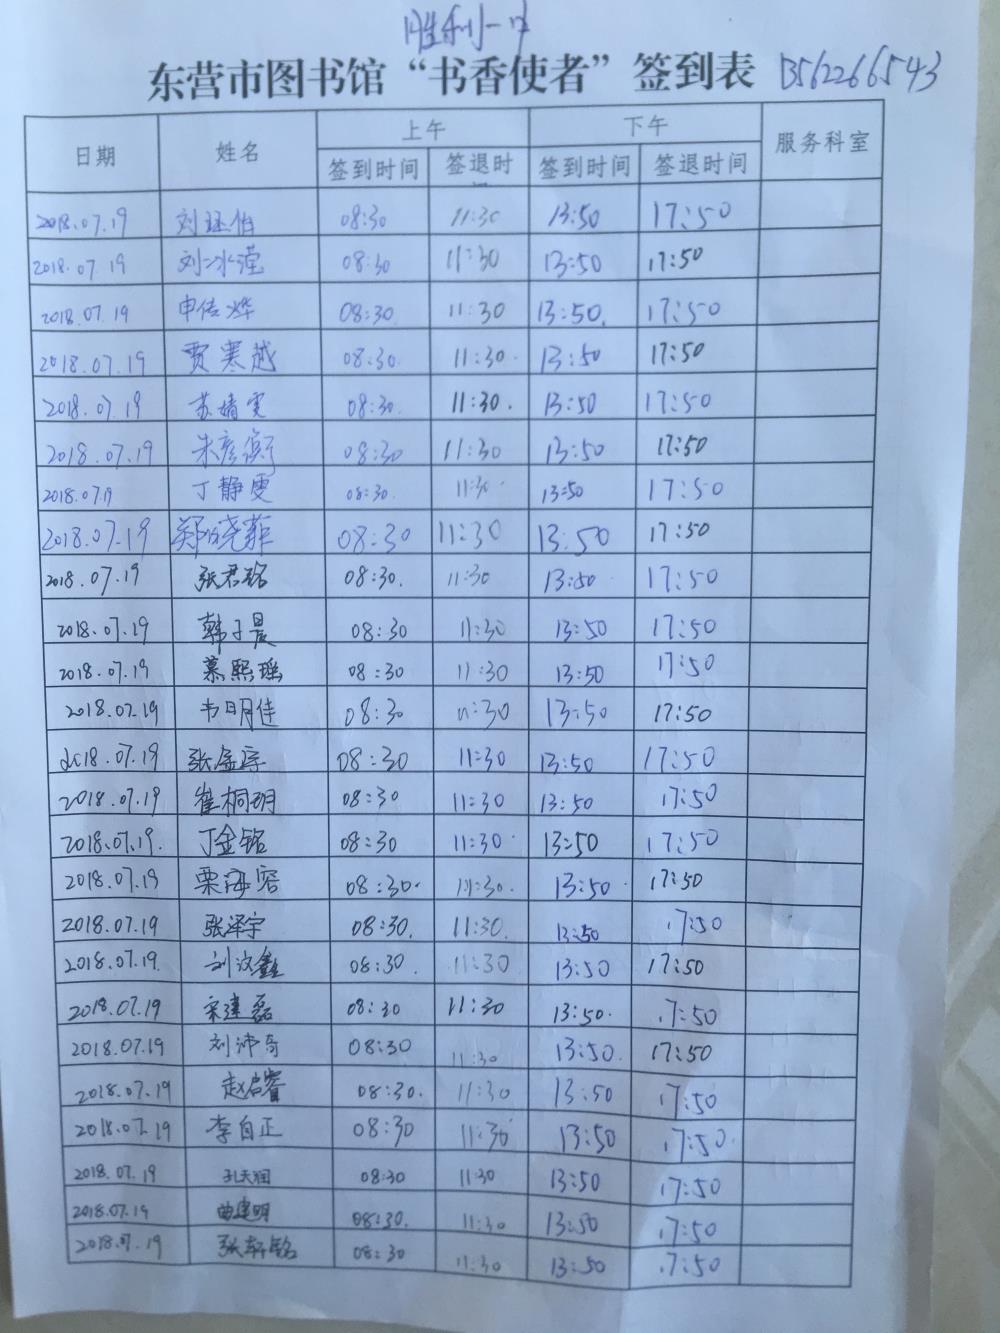 胜利一中
东营市图书馆“书香使者”签到表 13562266543
日期 姓名 上午 下午 服务科室
签到时间 签退时间 签到时间 签退时间
2018.07.19 刘珏伯 08:30 11:30 13:50 17:50
2018.07.19 刘冰滢 08:30 11:30 13:50 17:50
2018.07.19 申传烨 08:30 11:30 13:50 17:50
2018.07.19 贾寒越 08:30 11:30 13:50 17:50
2018.07.19 苏婧雯 08:30 11:30 13:50 17:50
2018.07.19 朱彦衡 08:30 11:30 13:50 17:50
2018.07.19 丁静雯 08:30 11:30 13:50 17:50
2018.07.19 郑晓菲 08:30 11:30 13:50 17:50
2018.07.19 张君铭 08:30 11:30 13:50 17:50
2018.07.19 韩子晨 08:30 11:30 13:50 17:50
2018.07.19 慕熙瑶 08:30 11:30 13:50 17:50
2018.07.19 明佳 08:30 11:30 13:50 17:50
2018.07.19 张 08:30 11:30 13:50 17:50
2018.07.19 崔桐玥 08:30 11:30 13:50 17:50
2018.07.19. 丁金铭 08:30 11:30 13:50 17:50
2018.07.19 栗海容 08:30 11:30 13:50 17:50
2018.07.19 张泽宇 08:30 11:30 13:50 17:50
2018.07.19. 刘汶鑫 08:30 11:30 13:50 17:50
2018.07.19 宋建磊 08:30 11:30 13:50 17:50
2018.07.19 刘沛奇 08:30 11:30 13:50 17:50
2018.07.19 赵启睿 08:30 11:30 13:50 17:50
2018.07.19 李自正 08:30 11:30 13:50 17:50
2018.07.19 孔天润 08:30 11:30 13:50 17:50
2018.07.19 曲建明 08:30 11:30 13:50 17:50
2018.07.19 张轩铭 08:30 11:30 13:50 17:50